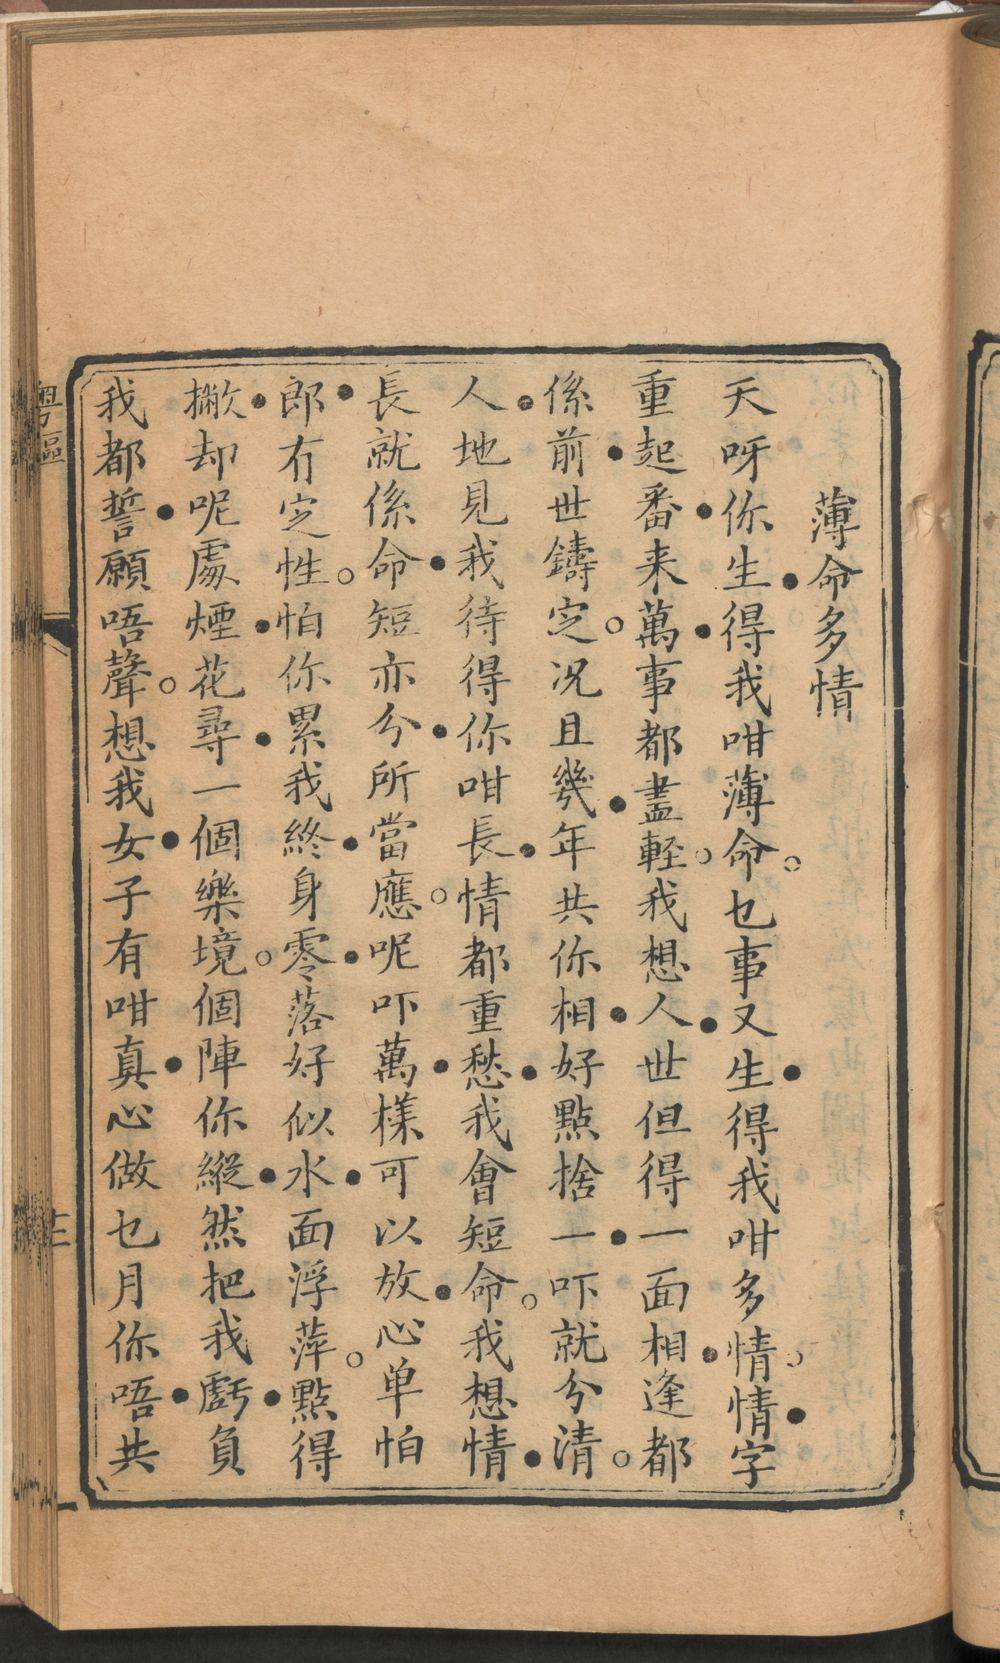 薄命多情
天呀你生得我咁薄命。乜事又生得我咁多情。情字
重起番来萬事都盡輕。我想人世但得一面相逢都
係前世鑄定。况且幾年共你相好點捨一吓就分清。
人地見我待得你咁長情都重愁我會短命。我想情
長就係命短亦分所當應。呢吓萬樣可以放心单怕
郎冇定性。怕你累我終身零落好似水面浮萍。點得
撇却呢處煙花尋一個樂境。個陣你縱然把我虧負
我都誓願唔聲。想我女子有咁真心做乜月你唔共
粵謳